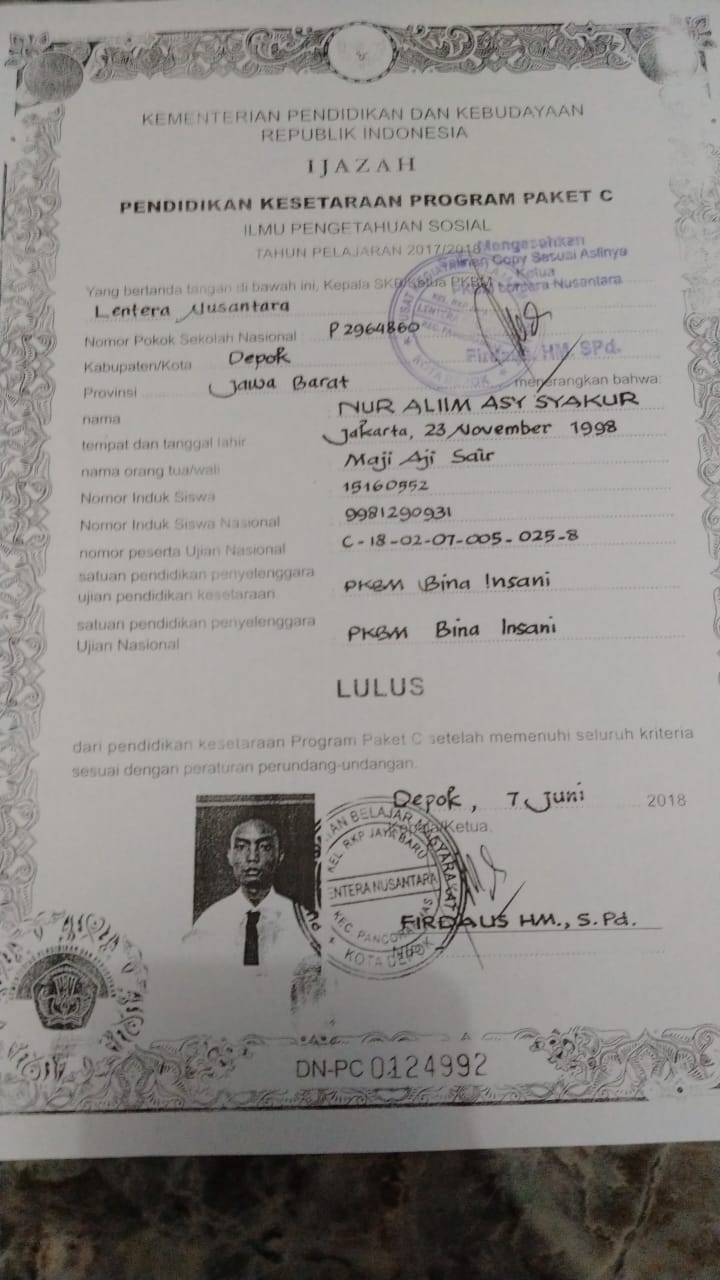 KEMENTERIAN PENDIDIKAN DAN KEBUDAYAAN
REPUBLIK INDONESIA
IJAZAH
PENDIDIKAN KESETARAAN PROGRAM PAKET C
ILMU PENGETAHUAN SOSIAL
TAHUN PELAJARAN 2017/2018
Mengesahkan
Copy Sesuai Aslinya
Ketua
Lentera Nusantara
Firdaus, HM, SPd.
Yang bertanda tangan di bawah ini, Kepala SKB/Ketua PKBM
Lentera Nusantara
Nomor Pokok Sekolah Nasional : P2964860
Kabupaten/Kota Depok
Provinsi Jawa Barat menerangkan bahwa:
nama NUR ALIIM ASY SYAKUR
tempat dan tanggal lahir Jakarta, 23 November 1998
nama orang tua/wali Maji Aji Sair
Nomor Induk Siswa 15160552
Nomor Induk Siswa Nasional 9981290931
nomor peserta Ujian Nasional C-18-02-07-005-025-8
satuan pendidikan penyelenggara
ujian pendidikan kesetaraan PKBM Bina Insani
satuan pendidikan penyelenggara
Ujian Nasional PKBM Bina Insani
LULUS
dari pendidikan kesetaraan Program Paket C setelah memenuhi seluruh kriteria
sesuai dengan peraturan perundang-undangan.
Depok, 7 Juni 2018
Kepala/Ketua,
BELAJAR MASYARAKAT
KEL RKP JAYA BARU
LENTERA NUSANTARA
KEC PANCORAN MAS
KOTA DEPOK
FIRDAUS HM., S.Pd.
DN-PC 0124992